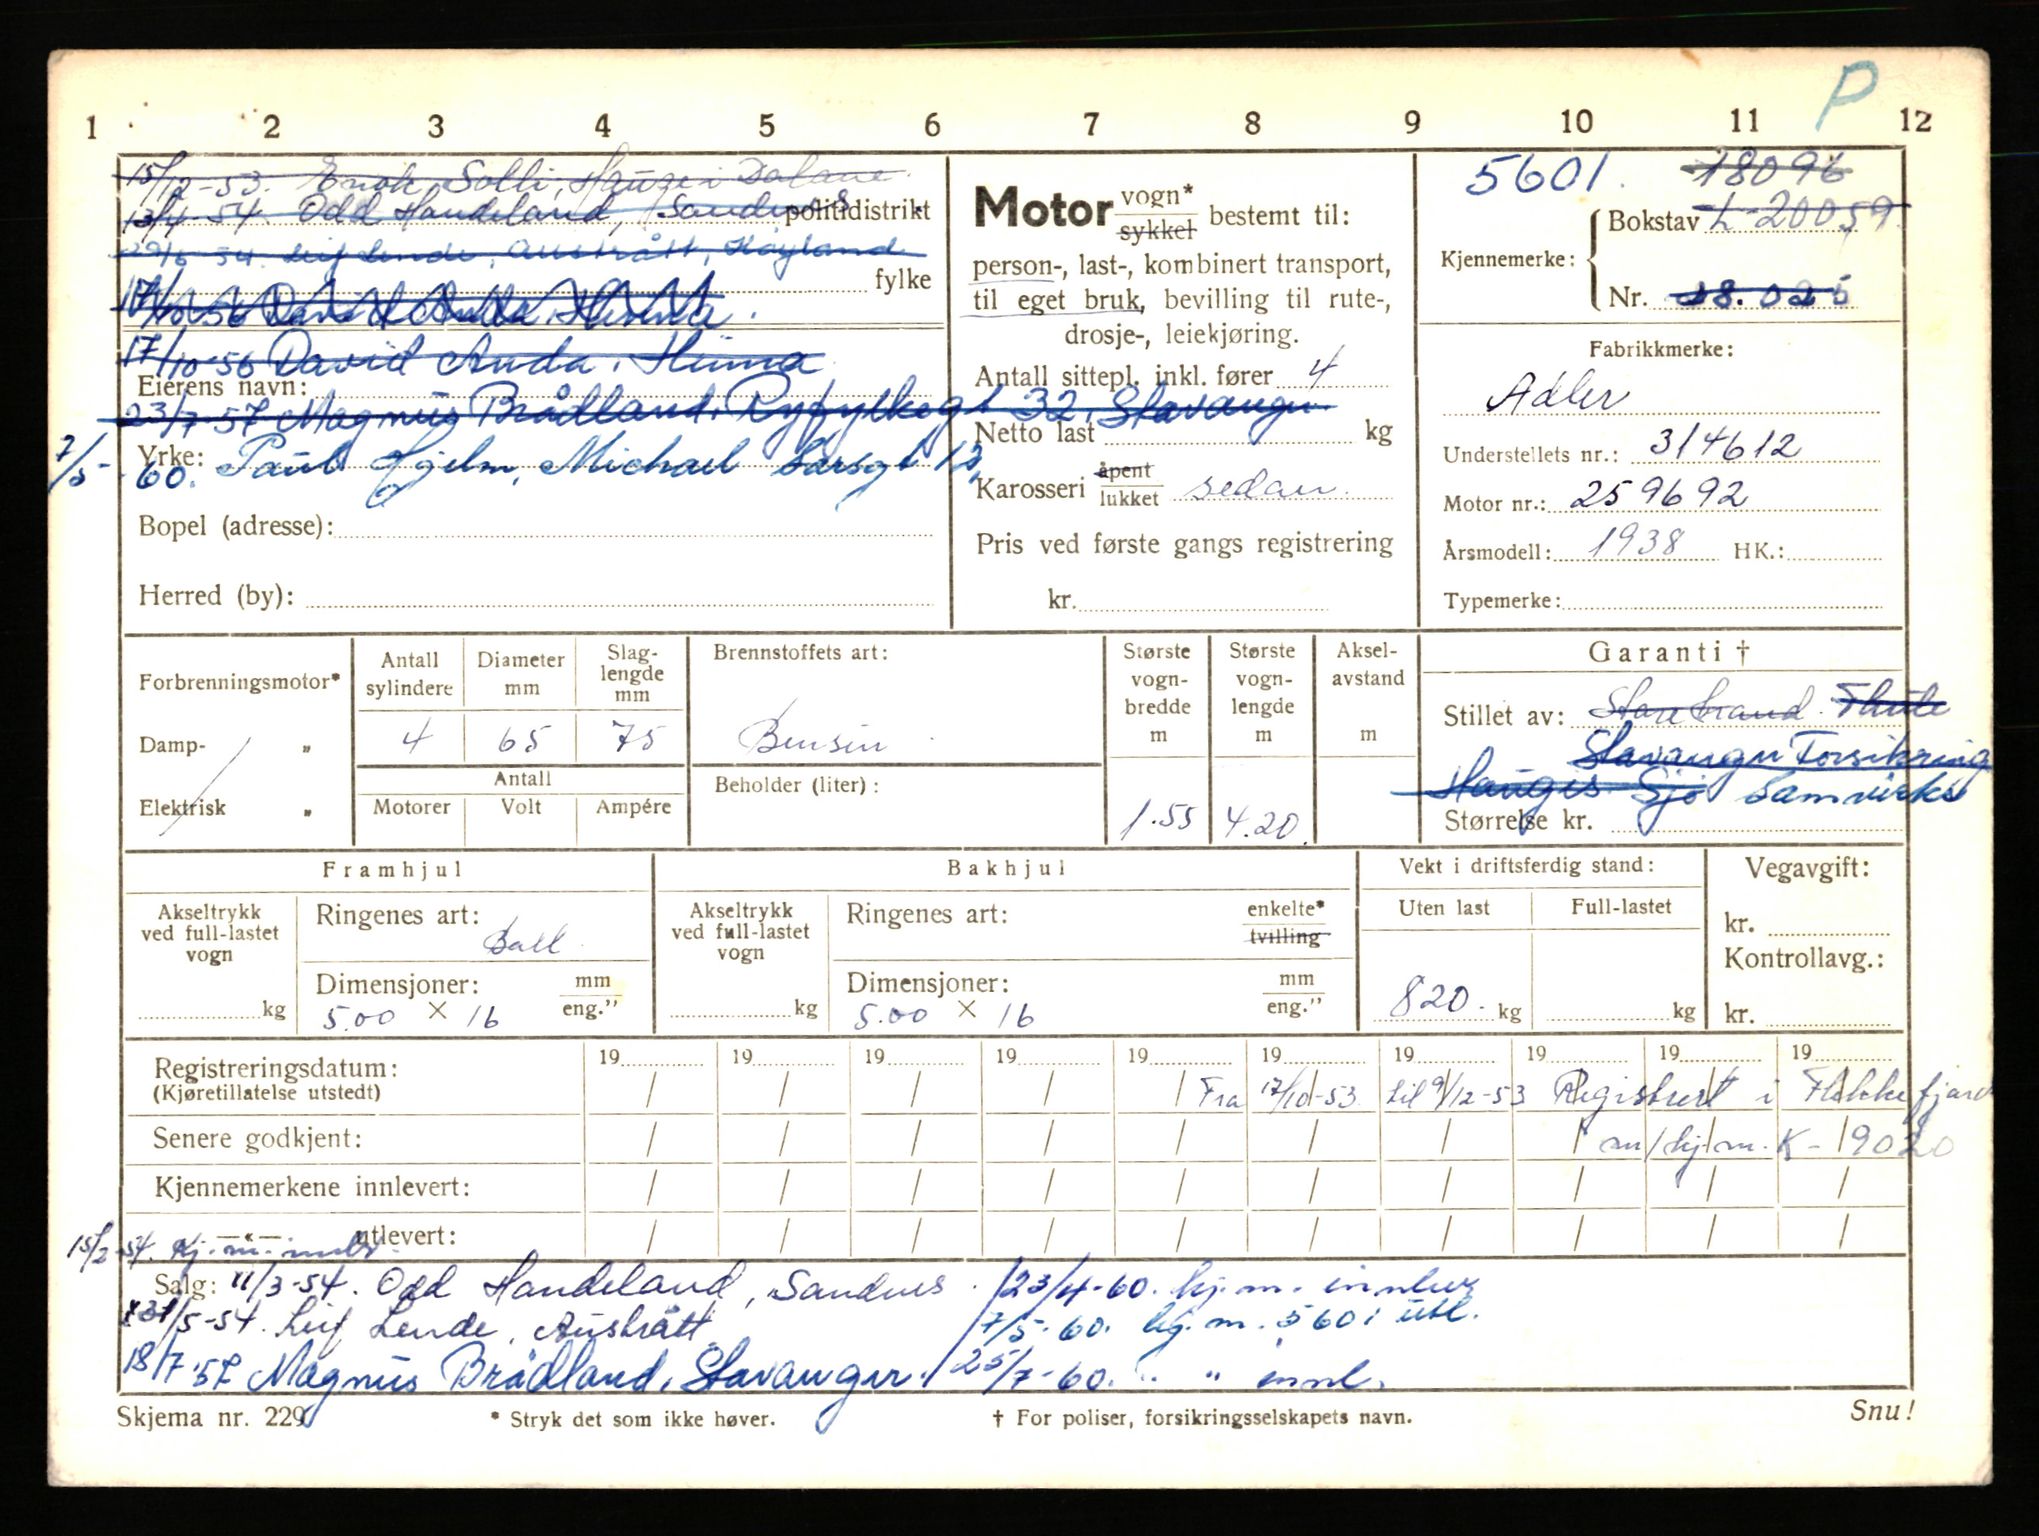 P
1 2 3 4 5 6 7 8 9 10 11 12
15/12-53. Enok Solli, Hauge i Dalane
13/4-54. Odd Handeland, Sandnes politidistrikt
29/6 54. Leif Lende, Austrått, Høyland
fylke
17/10-56 David Anda, Hinna.
17/10-56 David Anda, Hinna
Eierens navn:
23/7-57 Magnus Brådland, Ryfylkegt 32, Stavanger
7/5-60. Yrke: Paul Hjelm, Michael Sarsgt 12,
Bopel (adresse):
Herred (by):
Motor vogn* sykkel bestemt til:
person-, last-, kombinert transport,
til eget bruk, bevilling til rute-,
drosje-, leiekjøring.
Antall sittepl. inkl. fører 4
Netto last kg
Karosseri åpent lukket sedan
Pris ved første gangs registrering
kr.
5601. 18096
Kjennemerke: Bokstav L-20059
Nr. 28.025
Fabrikkmerke:
Adler
Understellets nr.: 314612
Motor nr.: 259692
Årsmodell: 1938 HK.:
Typemerke:
Forbrenningsmotor*
Damp- "
Elektrisk "
Antall sylindere 4
Diameter mm 65
Slaglengde mm 75
Antall
Motorer Volt Ampére
Brennstoffets art:
Bensin
Beholder (liter):
Største vognbredde m 1.55
Største vognlengde m 4.20
Akselavstand m
Garanti †
Stillet av: Storebrand Thule
Stavanger Forsikring
Haugs Sjø Samvirke
Størrelse kr.
Framhjul
Akseltrykk ved full-lastet vogn kg
Ringenes art: Ball
Dimensjoner: mm eng."
5.00 × 16
Bakhjul
Akseltrykk ved full-lastet vogn kg
Ringenes art: enkelte* tvilling
Dimensjoner: mm eng."
5.00 × 16
Vekt i driftsferdig stand:
Uten last Full-lastet
820.- kg kg
Vegavgift:
kr.
Kontrollavg.:
kr.
Registreringsdatum: 19 19 19 19 19 19 19 19 19 19
(Kjøretillatelse utstedt) Fra 17/10-53 til 9/12-53 Registrert i Flekkefjord
Senere godkjent: m/kj.m. K-19020
Kjennemerkene innlevert:
—«— utlevert:
15/2-54. Kj.m. innlev.
Salg: 11/3-54. Odd Handeland, Sandnes. 23/4-60. kj.m. innlev
31/5-54. Leif Lende, Austrått 7/5-60. kj.m. 5601 utl.
18/7 57 Magnus Brådland, Stavanger. 25/7-60. " " innl.
Skjema nr. 229
* Stryk det som ikke høver.
† For poliser, forsikringsselskapets navn.
Snu!